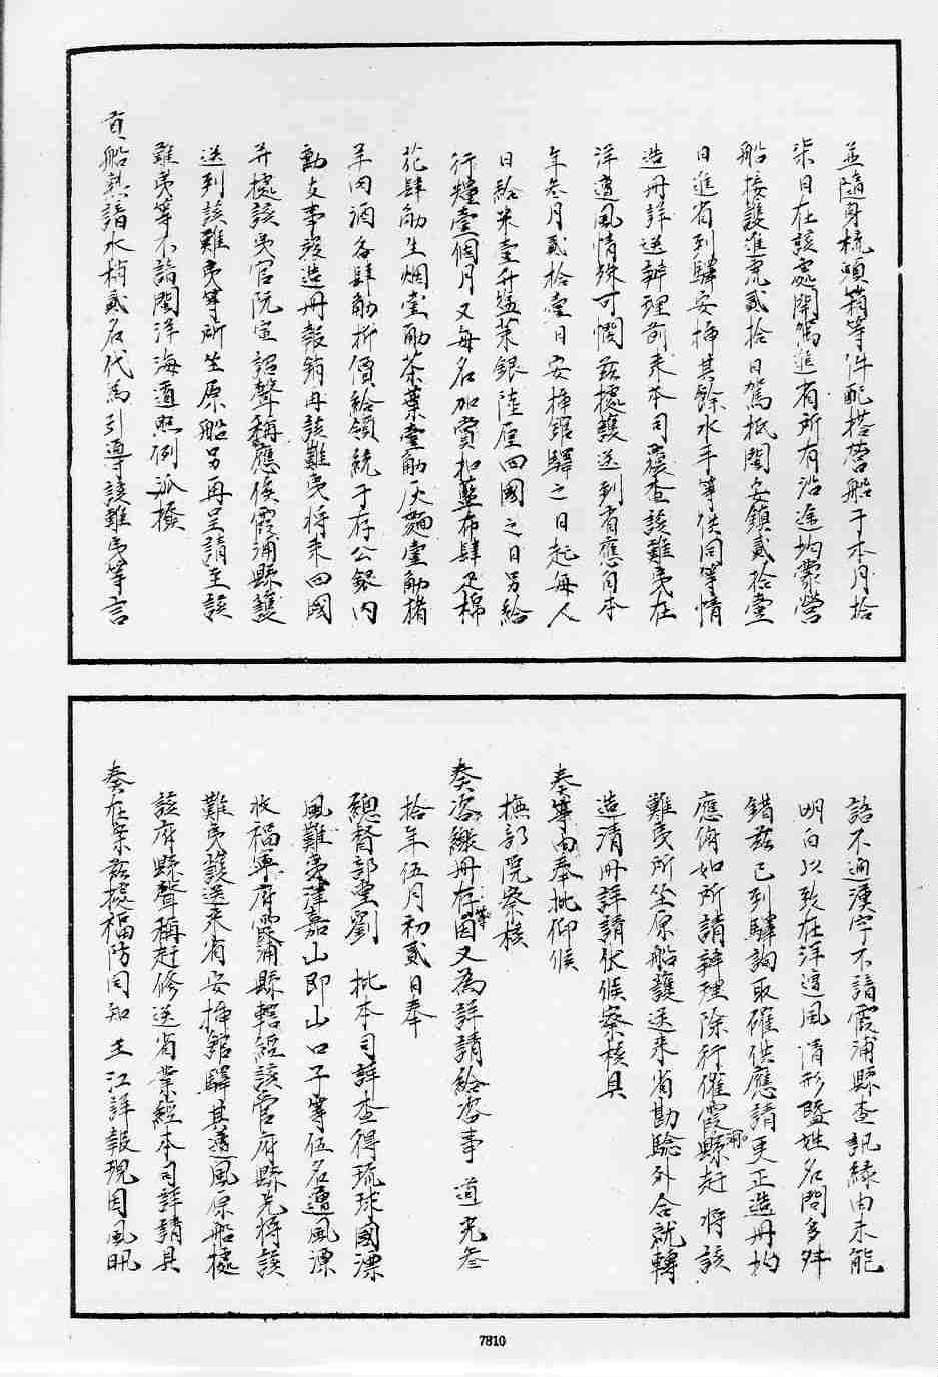 並隨身梳頭箱等件配搭營船于本月拾
柒日在該處開駕進省所有沿途均蒙營
船接護進港貳拾日駕抵閩安鎮貳拾壹
日進省到驛安揷其餘水手等供同等情
造册詳送辦理前來本司覆查該難夷在
洋遭風情殊可憫茲據護送到省應自本
年叁月貳拾壹日安揷館驛之日起每人
日給米壹升鹽菜銀陸厘回國之日另給
行糧壹個月又每名加賞扣藍布肆疋棉
花肆觔生烟壹觔茶葉壹觔灰麵壹觔猪
羊肉酒各肆觔折價給領統于存公銀内
動支事竣造册報銷再該難夷將來回國
并據該夷官阮宣詔聲稱應俟霞浦縣護
送到該難夷等所坐原船另再呈請至該
難夷等不諳閩洋海道照例派撥
貢船熟諳水梢貳名代為引導該難夷等言
語不通漢字不諳霞浦縣查訊緣由未能
明白以致在洋遭風情形暨姓名間多舛
錯茲已到驛詢取確供應請更正造册均
應俯如所請辦理除行催霞浦縣赶將該
難夷所坐原船護送來省勘騐外合就轉
造清册詳請伏候察核具
奏等由奉批仰候
撫部院察核
奏咨繳册存等因又為詳請給咨事道光叁
拾年伍月初貳日奉
總督部堂劉 批本司詳查得琉球國漂
風難夷津嘉山即山口子等伍名遭風漂
收福寧府霞浦縣轄經該管府縣先將該
難夷護送來省安揷館驛其遭風原船據
該府縣聲稱赶修送省業經本司詳請具
奏在案茲據福防同知王江詳報現因風汛
7810